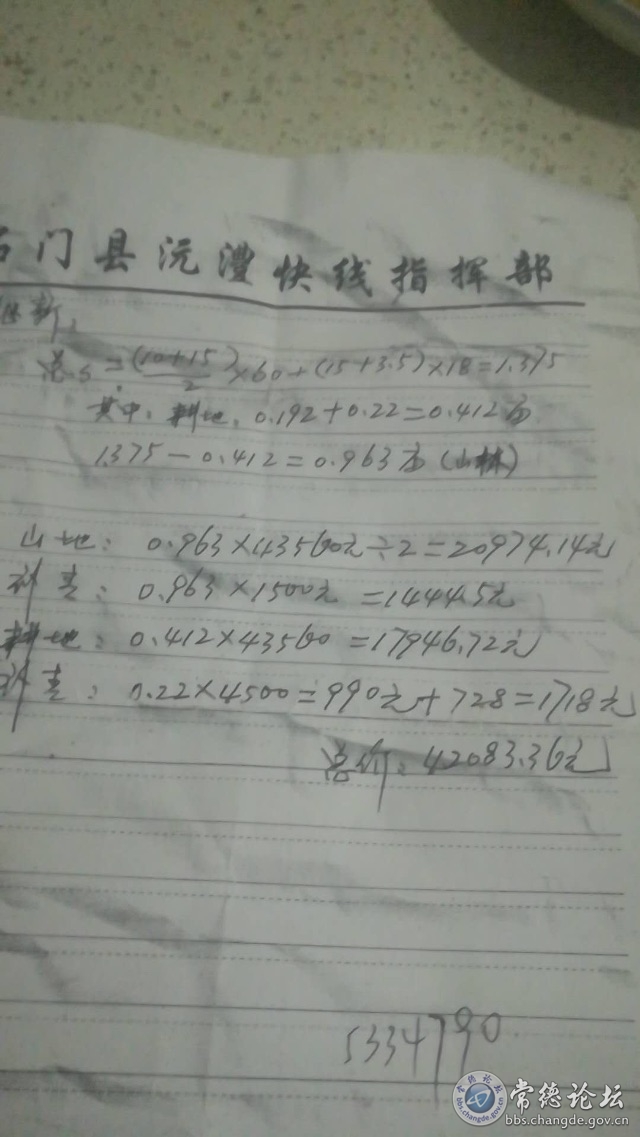 石门县沅澧快线指挥部
总S=(10+15)/2×60+(15+3.5)×18=1.375
其中:耕地,0.192+0.22=0.412亩
1.375-0.412=0.963亩(山林)
山地:0.963×43560元÷2=20974.14元
补青:0.963×1500元=1444.5元
耕地:0.412×43560=17946.72元
补青:0.22×4500=990元+728=1718元
总价:42083.36元
5334790
常德论坛
bbs.changde.gov.cn